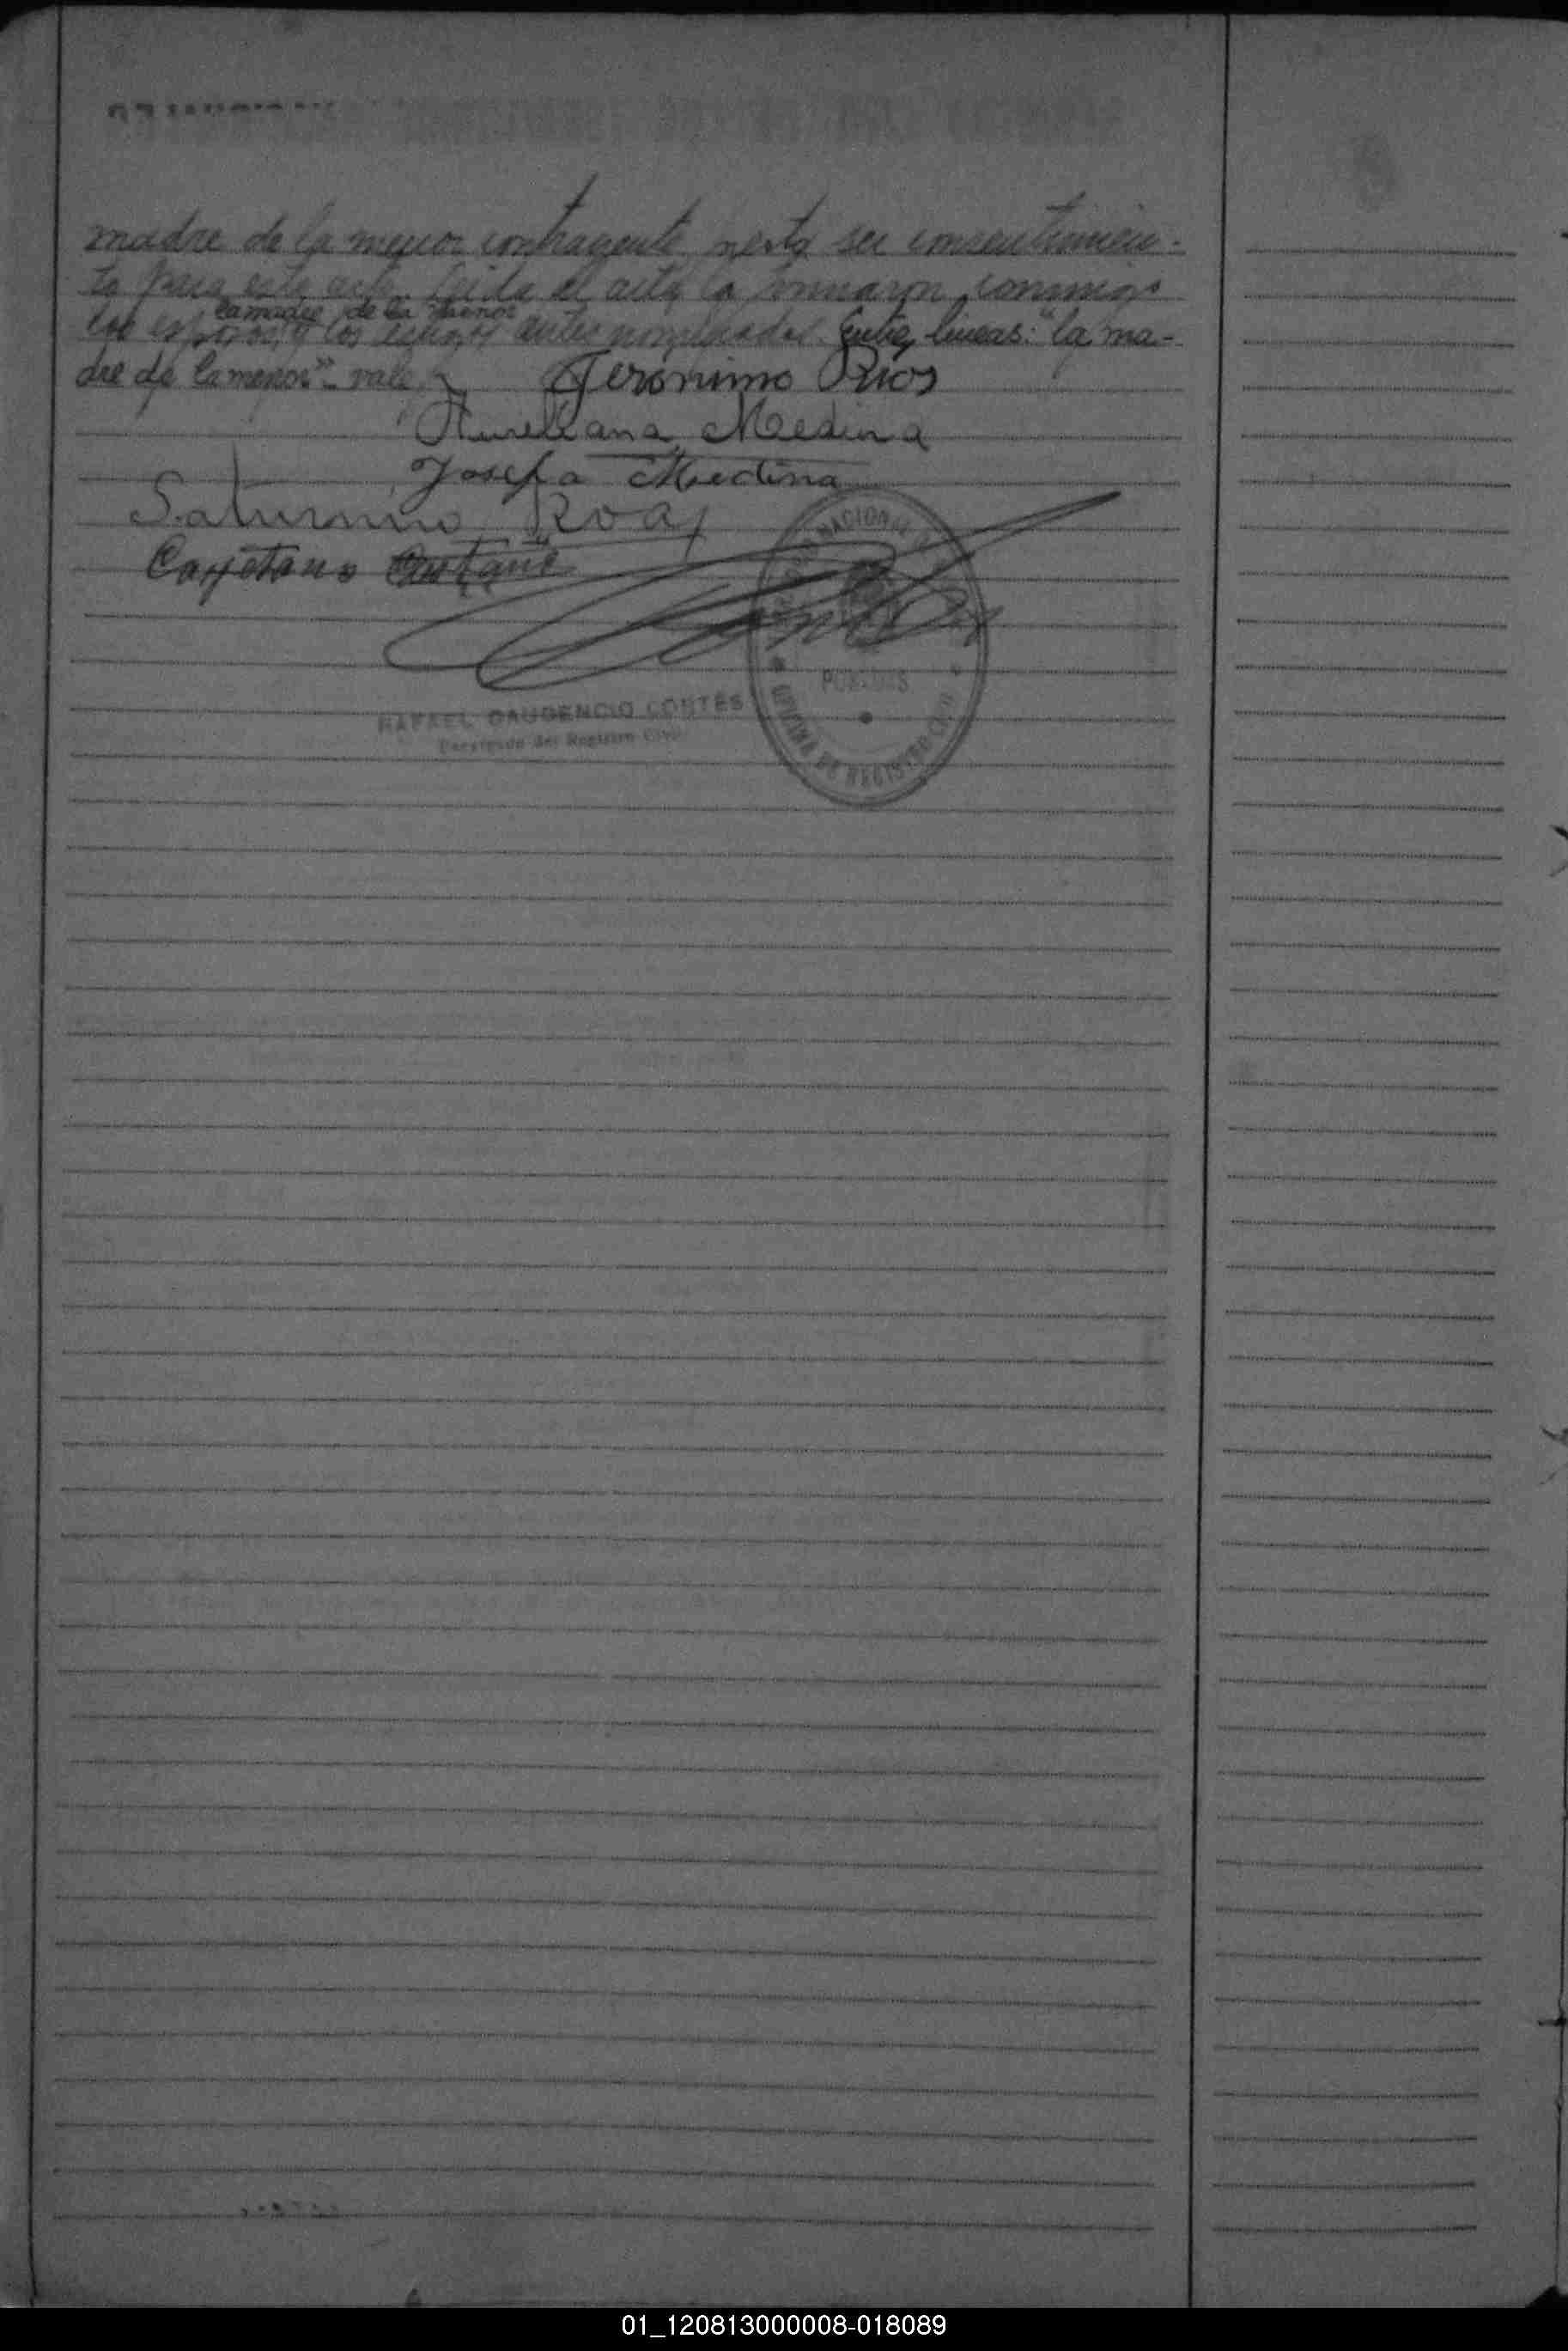 madre de la menor contrayente presta su consentimien-
to para este acto. Leida el acta la firmaron conmigo
la madre de la menor
los esposos, y los testigos antes nombrados. Entre lineas: "la ma-
dre de la menor" - vale.
Jeronimo Rios
Aureliana Medina
Josefa Medina
Saturnino Roa
Cayetano
NACIONAL
OFICINA DE REGISTRO CIVIL
RAFAEL GAUDENCIO CORTÉS
Encargado del Registro Civil
01_120813000008-018089